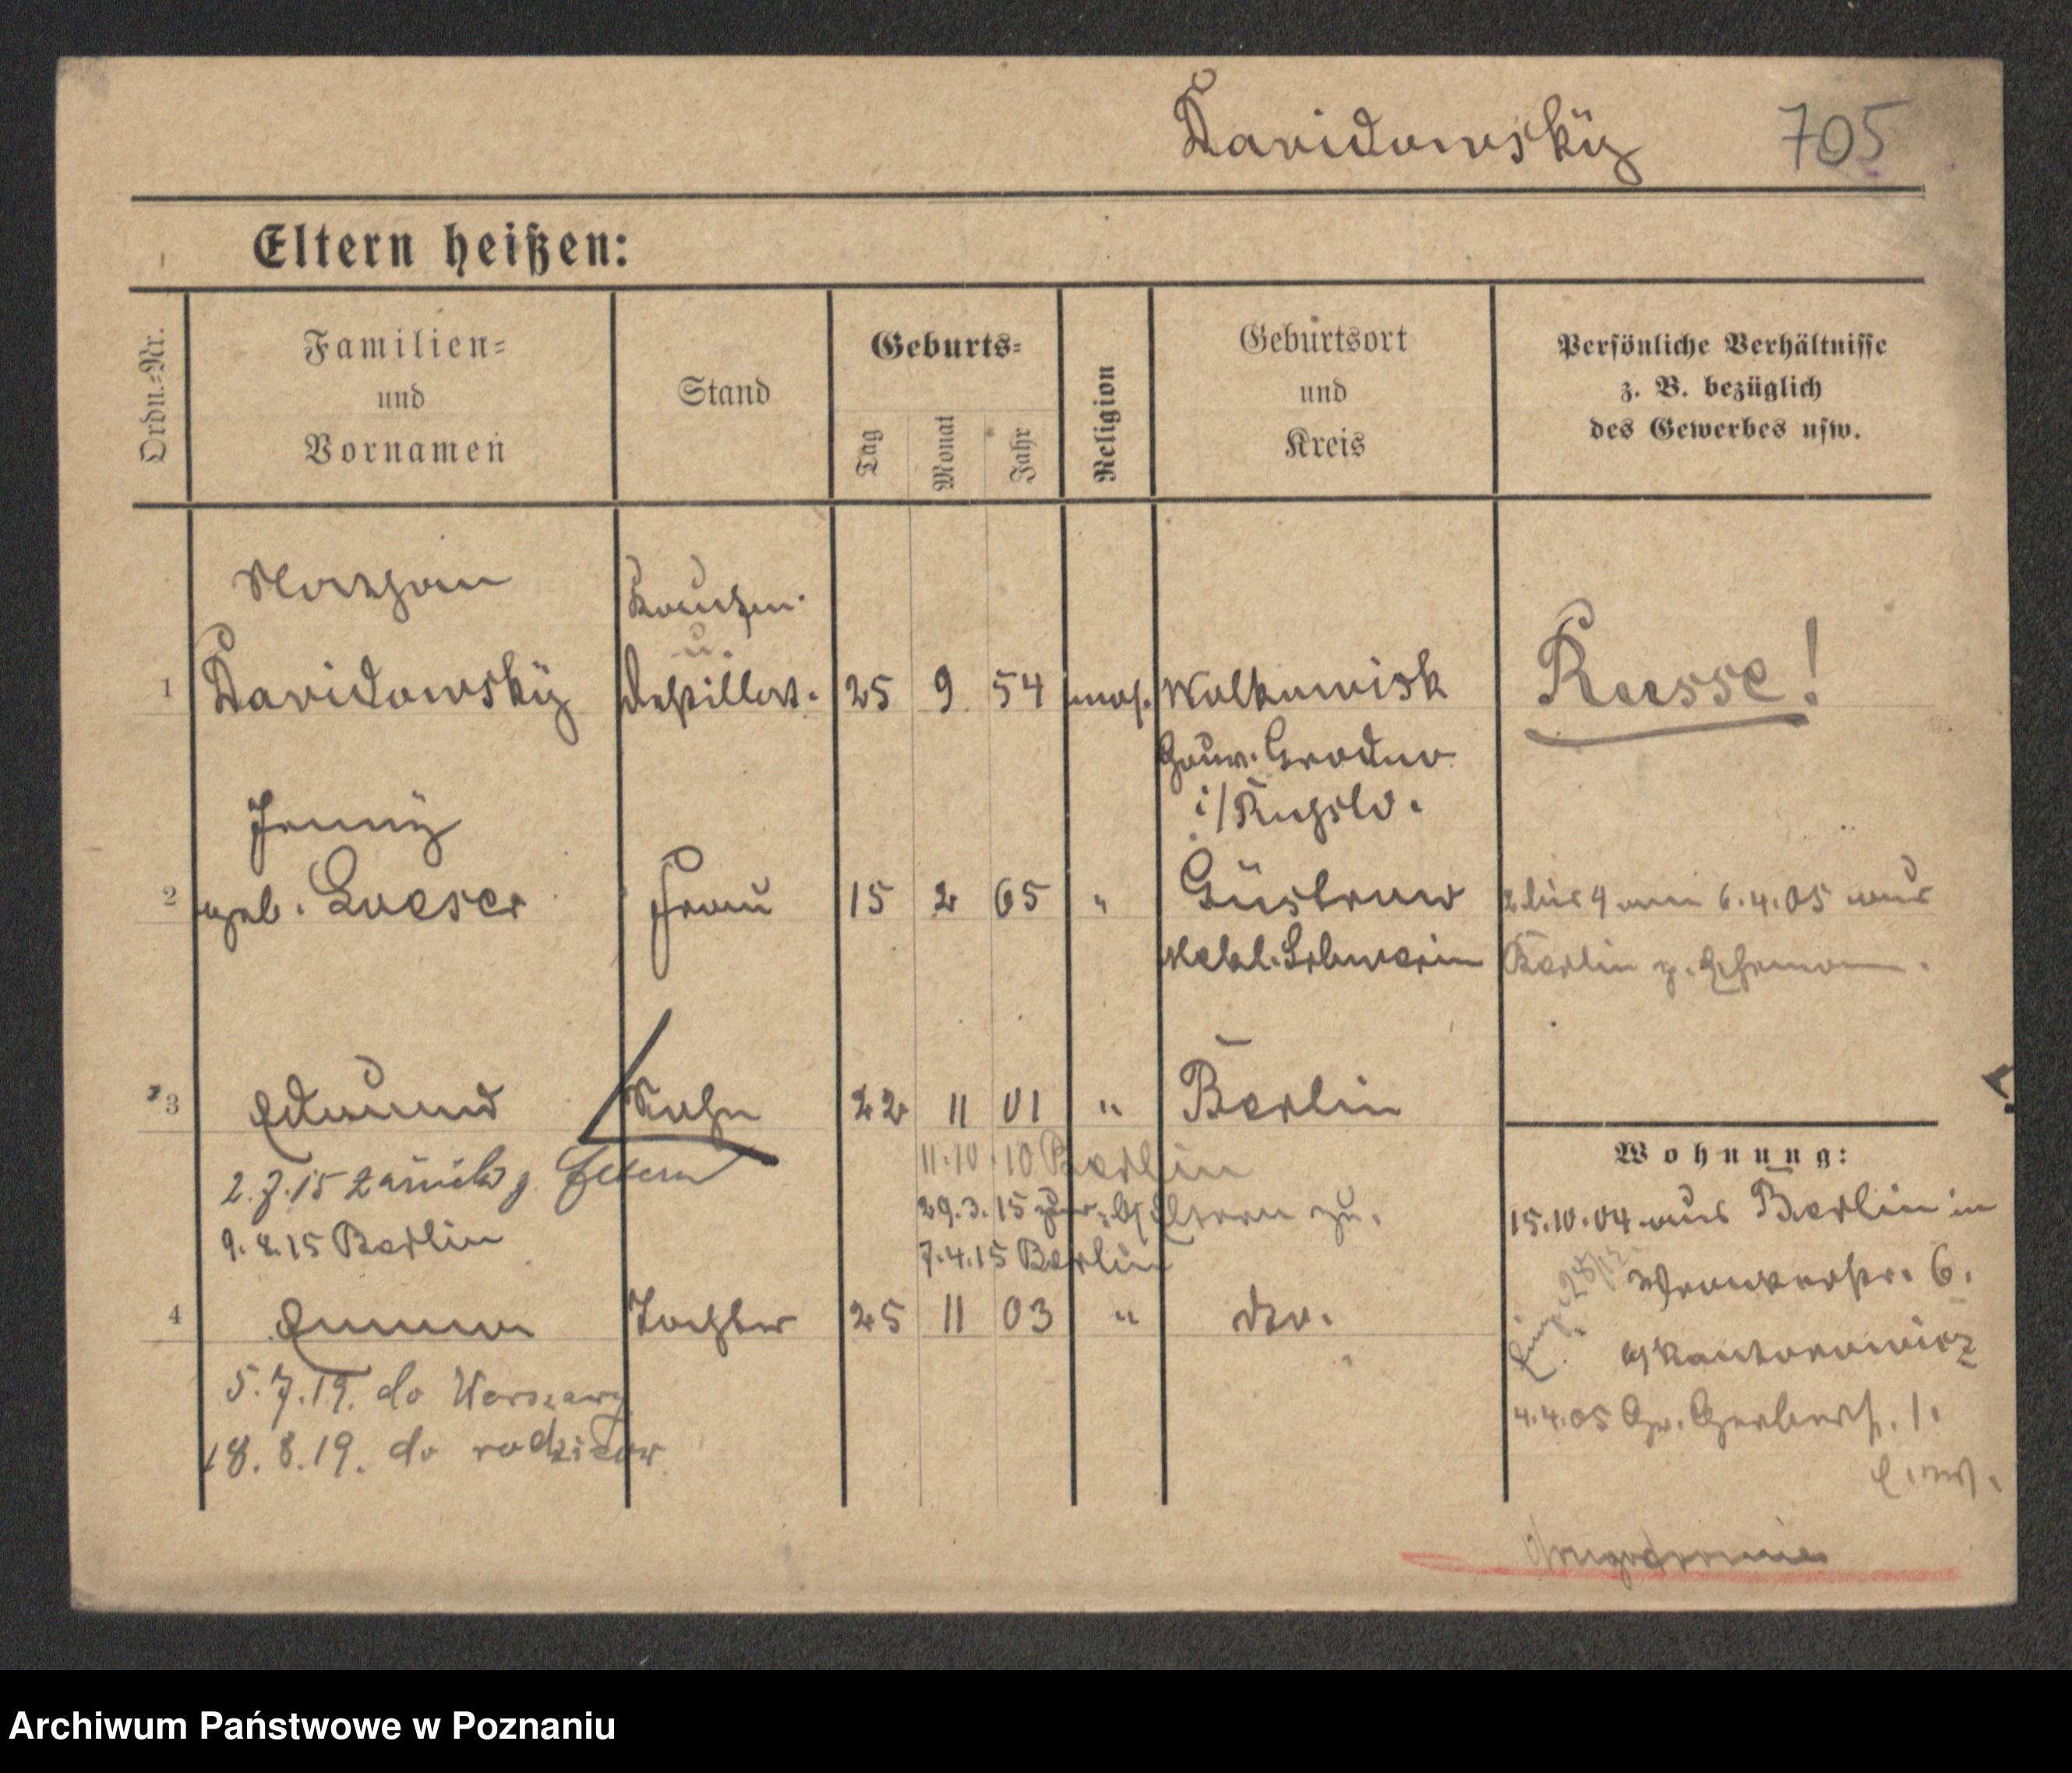 Davidowskÿ 705
Eltern heißen:
Ordn.=Nr.
Familien=
und
Vornamen
Stand
Geburts=
Tag
Monat
Jahr
Religion
Geburtsort
und
Kreis
Persönliche Verhältnisse
z. B. bezüglich
des Gewerbes usw.
Kaufm.
u.
1 Davidowskÿ Destillat. 25 9 54 mos. Wolkowisk Russe!
Gouv. Grodno
i/Rußld.
Jennÿ
2 geb. Loeser Frau 15 2 65 " Güstrow 2 bis 4 am 6.4.05 aus
Mekl. Schwerin Berlin z. Ehemann.
3 Edmund Sohn 22 11 01 " Berlin
11.10.10 Berlin
2.7.15 zurück z. Eltern
29.3.15 Eltern zu.
9.8.15 Berlin
7.4.15 Berlin
4 Emma Tochter 25 11 03 " dto.
5.7.19. do Warszawy
18.8.19. do rodziców
Wohnung:
15.10.04 aus Berlin in
Wronkerstr. 6.
b/Kantorowicz
4.4.05 Gr. Gerberst. 1.
Archiwum Państwowe w Poznaniu